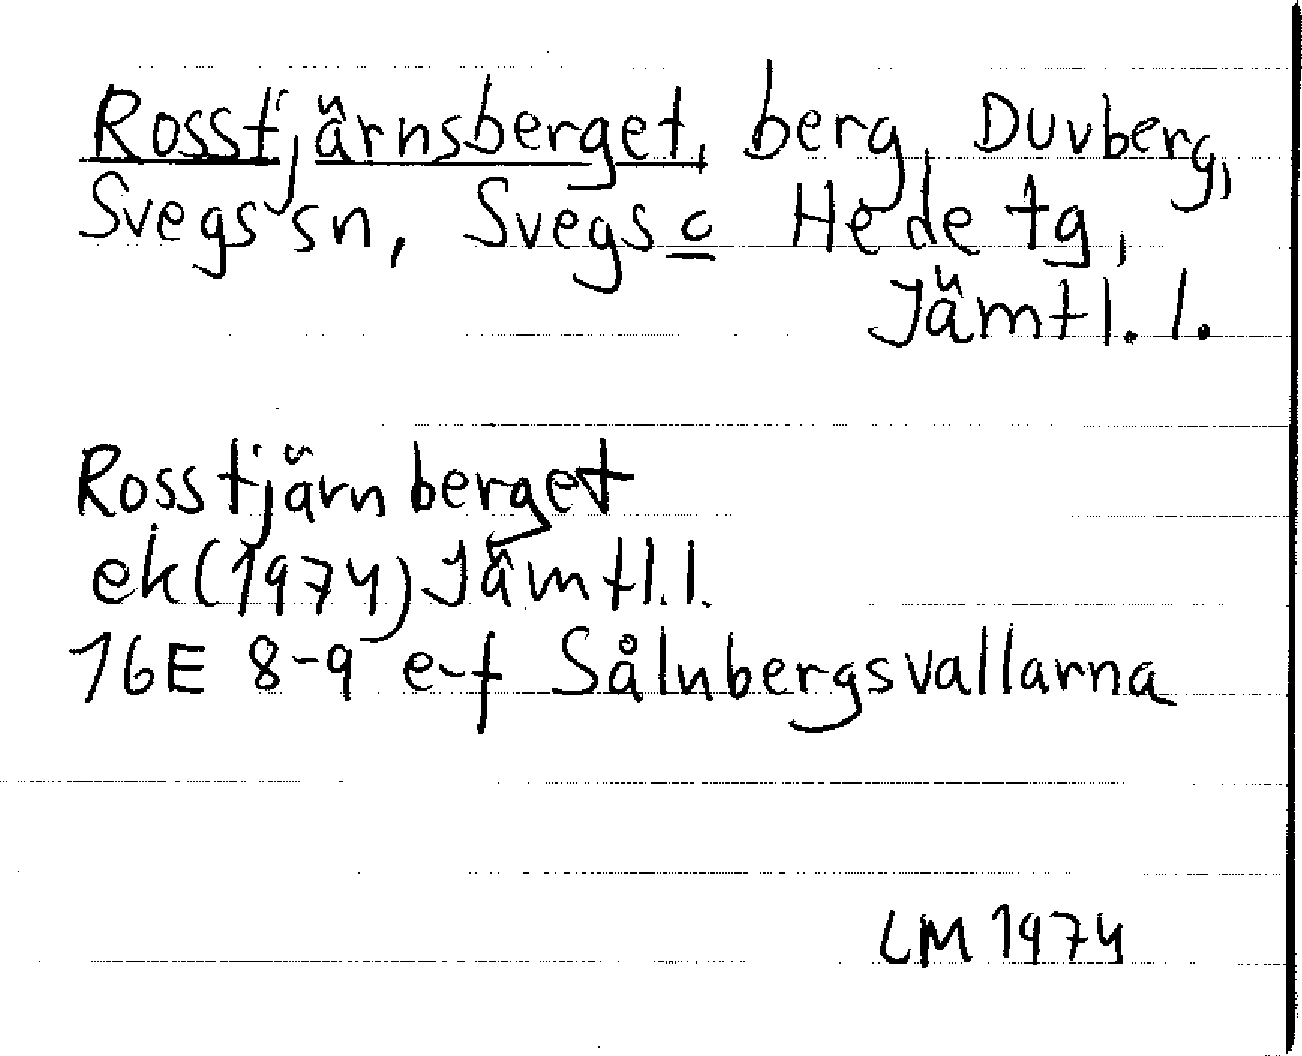 Rosstjärnsberget, berg, Duvberg,
Svegs sn, Svegs c Hede tg,
Jämtl. l.
Rosstjärnberget
ek (1974) Jämtl. l.
16E 8-9 e-f Sålnbergsvallarna
LM 1974